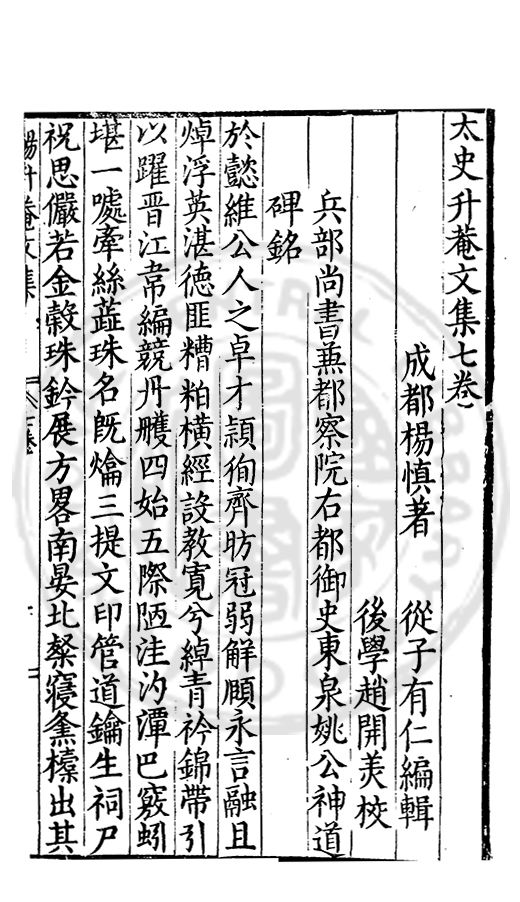 太史升菴文集七卷
成都楊慎著　從子有仁編輯
後學趙開美校
兵部尚書蒹都察院右都御史東泉姚公神道
碑銘
於懿維公人之卓才頴徇齊昉冠弱解願永言融且
焯浮英湛德匪糟粕橫經設教寬兮綽青衿錦帶引
以躍晋江韋編競丹雘四始五際陋洼汋潭巴竅蚓
堪一噱牽絲蕋珠名旣爚三提文印管道鑰生祠尸
祝思儼若金穀珠鈐展方畧南晏北槩寢鱻櫜出其
楊升菴文集